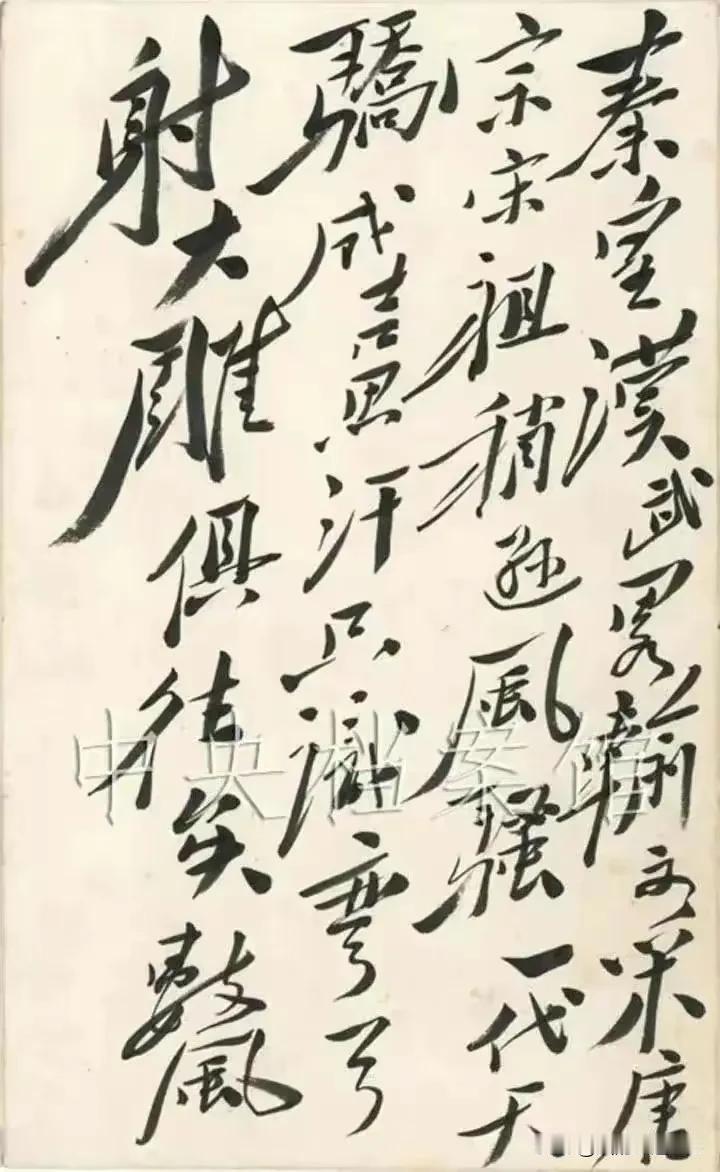 秦皇漢武畧輸文采唐
宗宋祖稍遜風騷一代天
驕成吉思汗只識弯弓
射大雕俱往矣數風
中央档案馆